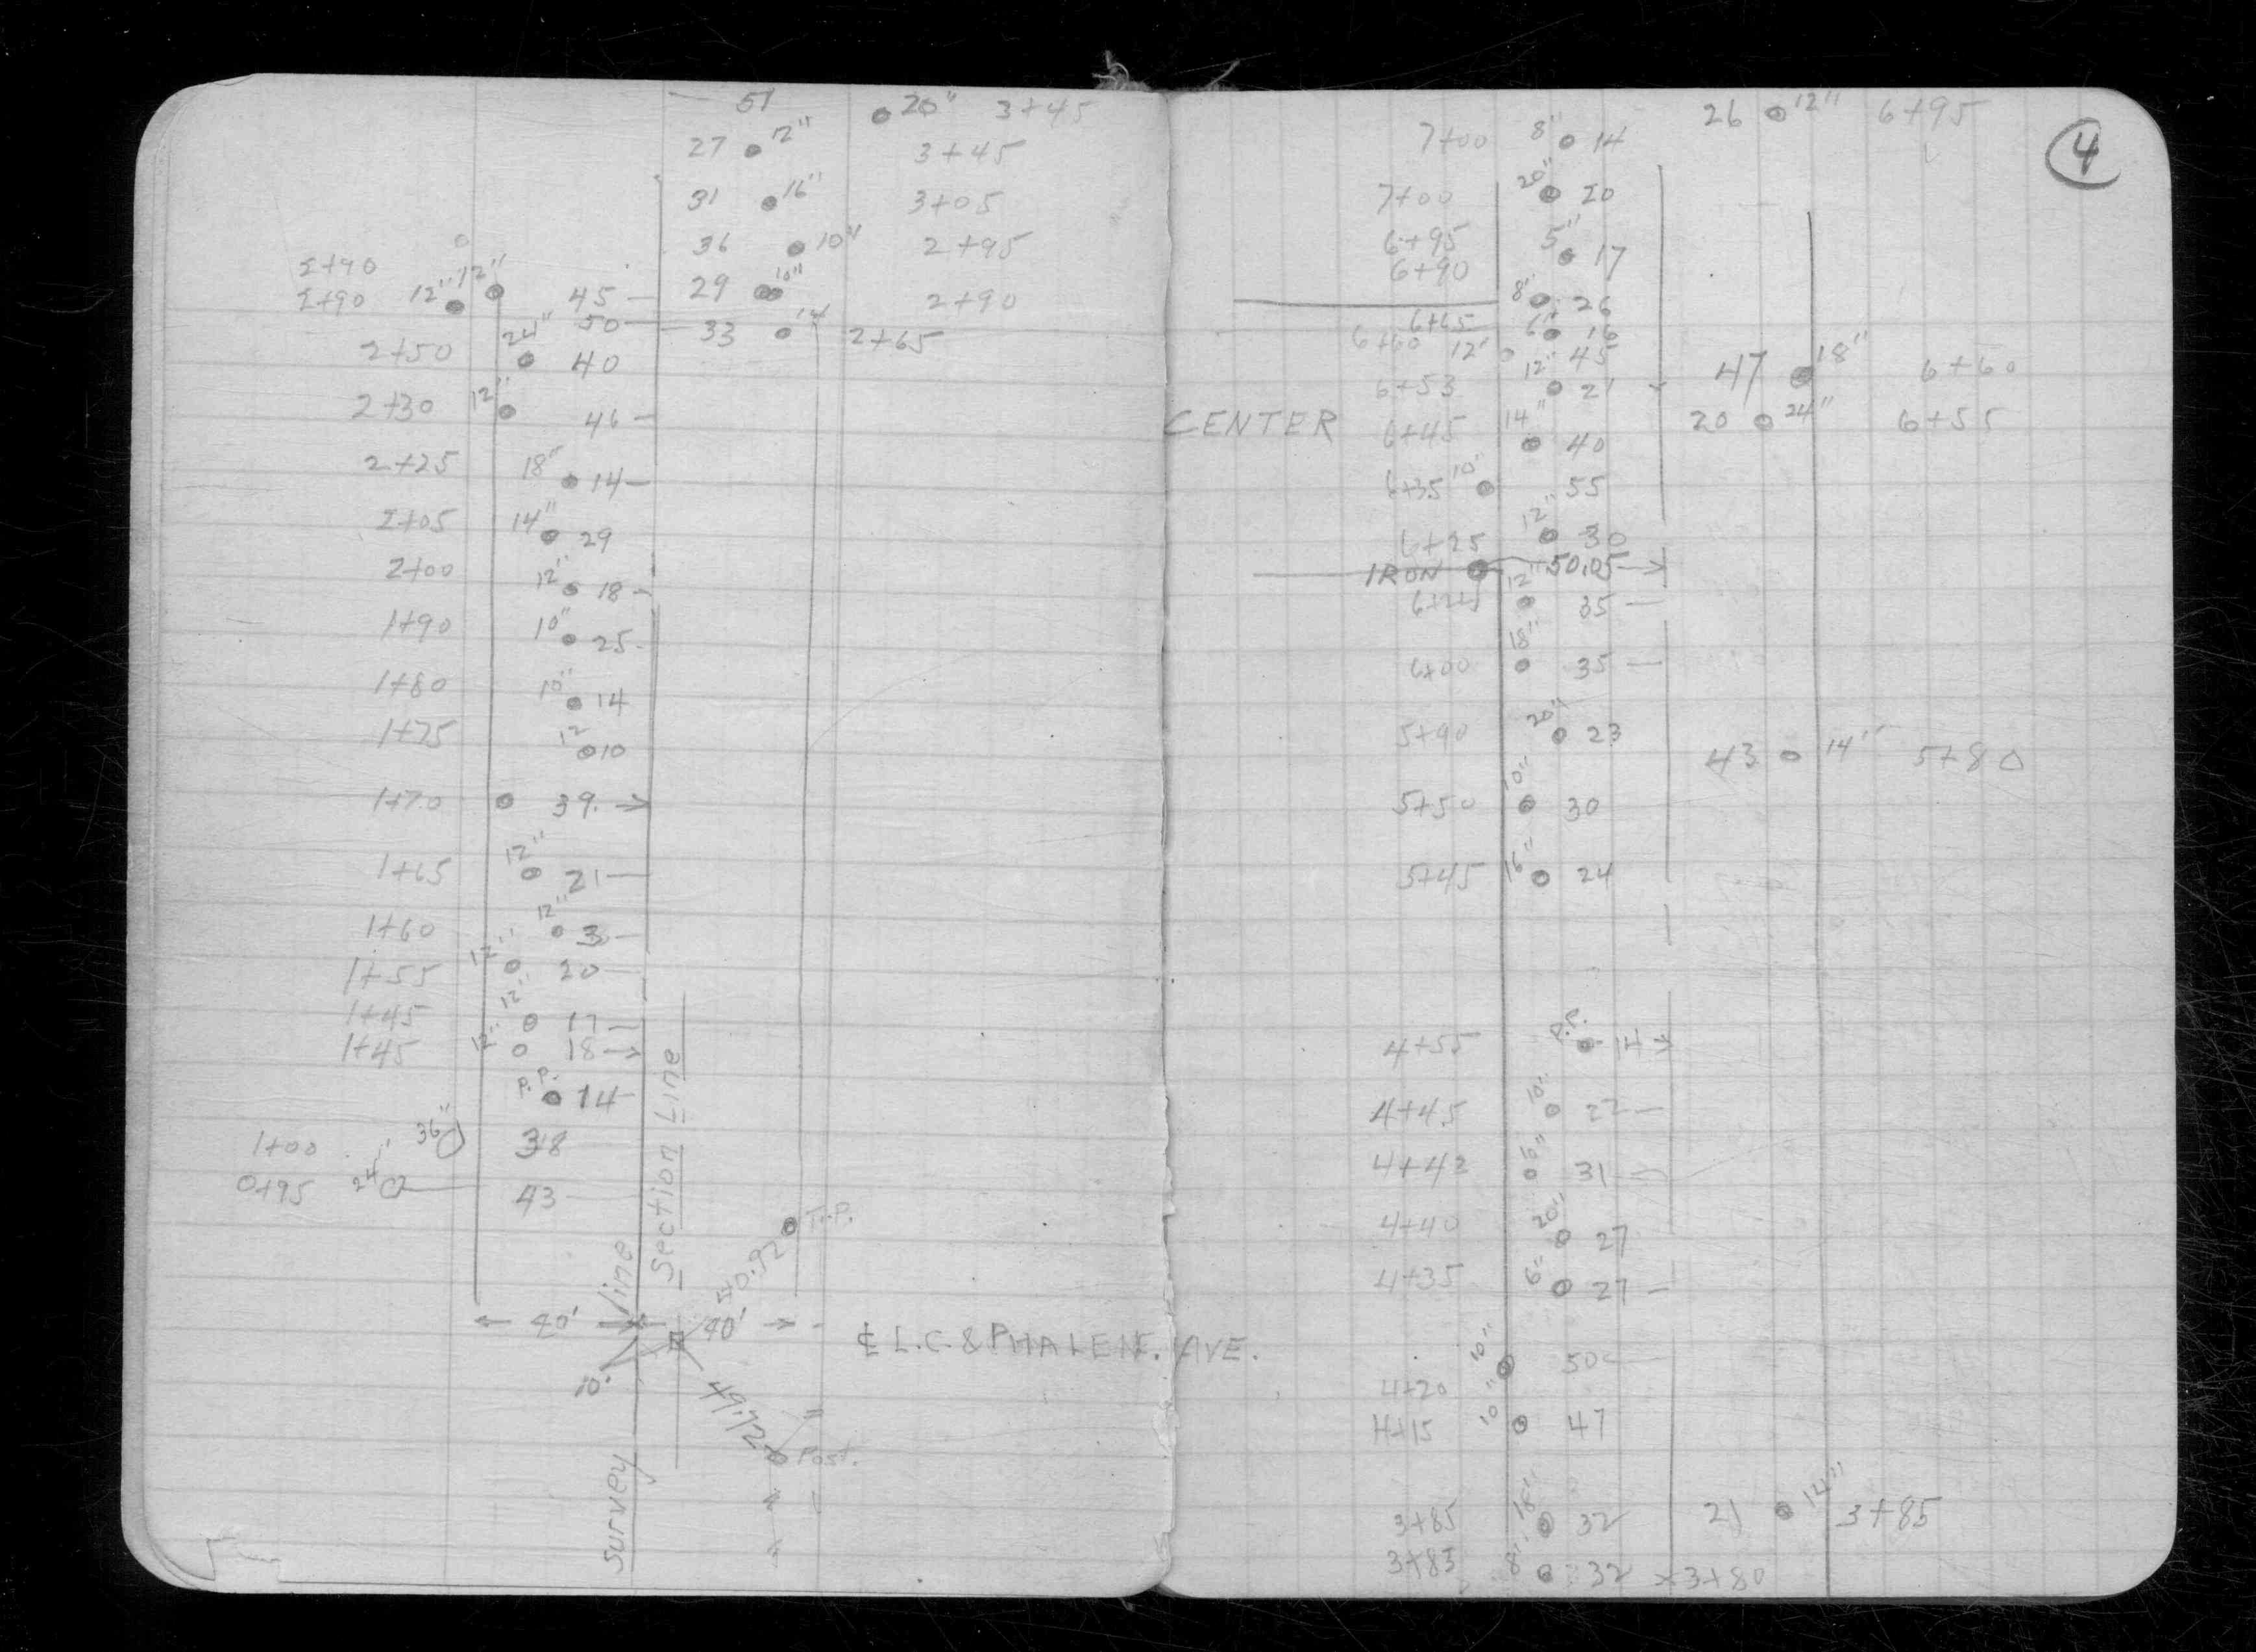 51 20" 3+45
27 12" 3+45
31 16" 3+05
36 10" 2+95
2+90
2+90 12" 12" 45 29 10" 2+90
50 33 2+65
2+50 24" 40
2+30 12" 46
2+25 18" 14
2+05 14" 29
2+00 12" 18
1+90 10" 25
1+80 10" 14
1+75 12 10
1+70 39
1+65 12" 21
1+60 12" 3
1+55 12" 20
1+45 12" 17
1+45 12" 18
P.P. 14
1+00 36" 38
0+95 24" 43
Survey line
Section Line
T.P.
40' 40'
10'
49.72
Post.
℄ L.C. & PHALEN. AVE.
4
26 12" 6+95
7+00 8" 14
7+00 20" 20
6+95 5" 17
6+90 8" 26
6+65 6" 16
6+60 12" 45
6+53 12" 21 47 18" 6+60
20 24" 6+55
CENTER 6+45 14" 40
6+35 10" 55
6+25 12" 30
IRON 50.05
12" 35
6+00 18" 35
5+90 20" 23
43 14" 5+80
5+50 10" 30
5+45 16" 24
4+55 P.P. 14
4+45 10" 22
4+42 31
4+40 20" 27
4+35 6" 27
4+20 10" 50
4+15 10" 47
3+85 18" 32 21 14" 3+85
3+83 8" 32 x3+80